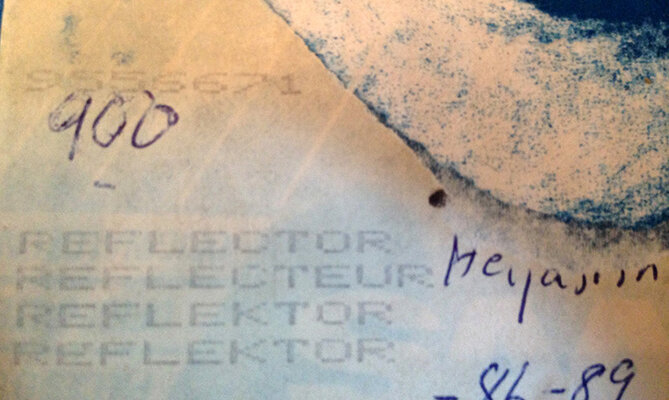 9656671
900
REFLECTOR
REFLECTEUR
REFLEKTOR
REFLEKTOR
-86-89